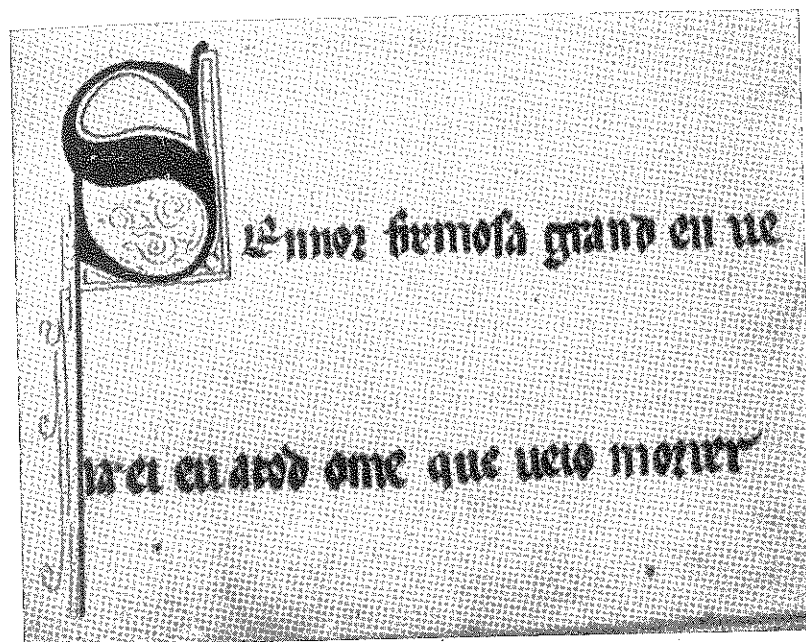 SEnnor fremosa grand en ue
ia·ei eu atod ome que ueio morrer